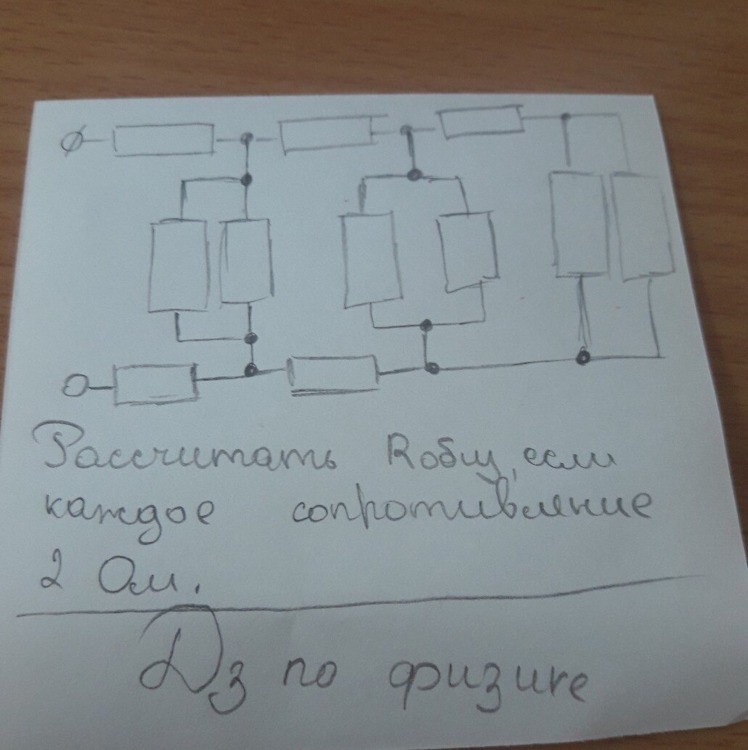 Рассчитать Rобщ, если
каждое сопротивление
2 Ом.
Дз по физике